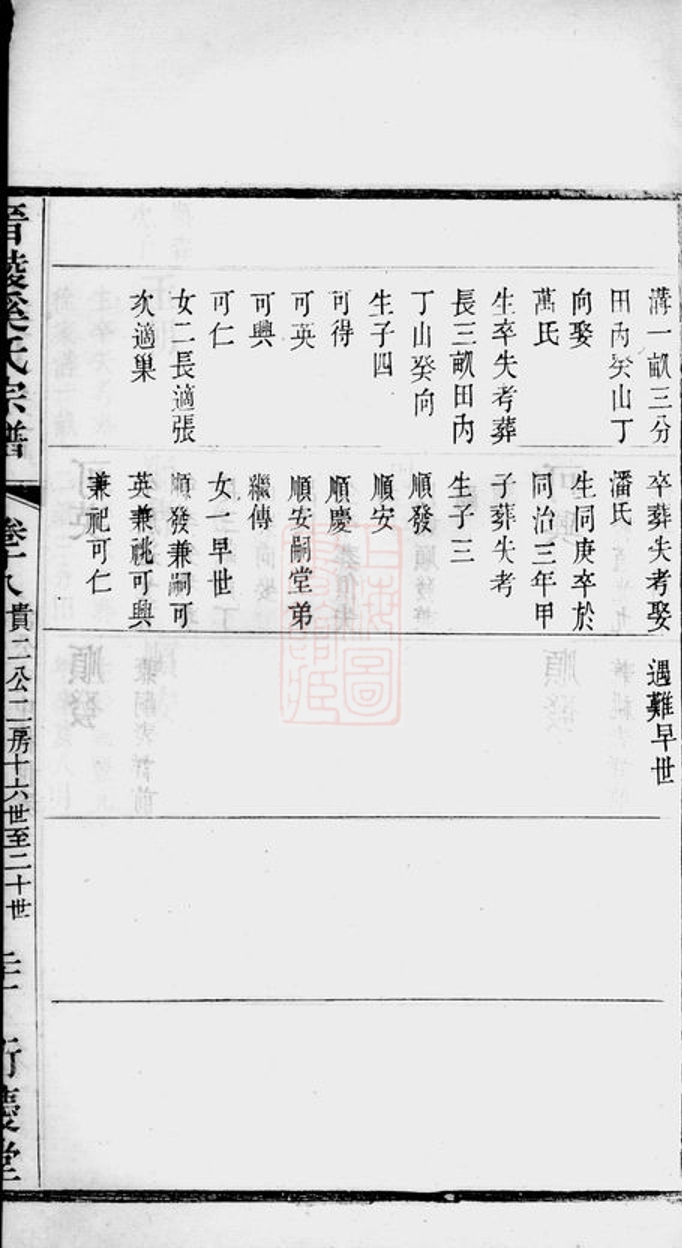 溝一畝三分
田內癸山丁
向娶
萬氏
生卒失考葬
長三畝田內
丁山癸向
生子四
可得
可英
可興
可仁
女二長適張
次適巢
卒葬失考娶
潘氏
生同庚卒於
同治三年甲
子葬失考
生子三
順發
順安
順慶
順安嗣堂弟
繼傳
女一早世
順發兼嗣可
英兼祧可興
兼祀可仁
遇難早世
晉陵奚氏宗譜
卷十八
貴二公二房十六世至二十世